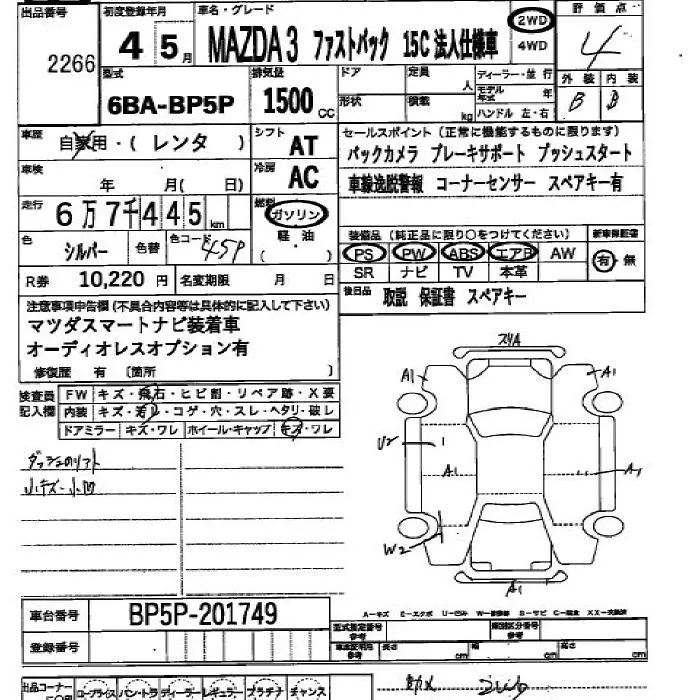 出品番号 初度登録年月 車名・グレード 2WD 評価点
2266 4 5月 MAZDA3 ファストバック 15C 法人仕様車 4WD 4
型式 排気量 ドア 定員 人 ディーラー・並行 外装 内装
6BA-BP5P 1500cc 形状 積載 kg モデル年式 年 B B
ハンドル 左・右
車歴 自家用・( レンタ ) シフト AT セールスポイント (正常に機能するものに限ります)
車検 年 月( 日) 冷房 AC バックカメラ ブレーキサポート プッシュスタート
車線逸脱警報 コーナーセンサー スペアキー有
走行 6万7千445km 燃料 ガソリン
軽油
( )
装備品 (純正品に限り○をつけてください) 新車保証書
色 シルバー 色替 色コード 45P PS PW ABS エアB AW 有・無
SR ナビ TV 本革
R券 10,220円 名変期限 月 日 後日品 取説 保証書 スペアキー
注意事項申告欄 (不具合内容等は具体的に記入して下さい)
マツダスマートナビ装着車
オーディオレスオプション有
修復歴 有 〔箇所 〕
検査員記入欄 FW キズ・飛石・ヒビ割・リペア跡・X要
内装 キズ・汚レ・コゲ・穴・スレ・ヘタリ・破レ
ドアミラー キズ・ワレ ホイール・キャップ キズ・ワレ
スリA
A1 A1
U2
A1 A1
W2
A1
小キズ・小凹
車台番号 BP5P-201749
A-キズ E-エクボ U-凹み W-補修跡 S-サビ C-腐食 XX-交換済
登録番号 型式指定番号 参考 類別区分番号 参考
車庫証明用 参考 長さ cm 幅 cm 高さ cm
出品コーナー コープライス バントラ ディーラー レギュラー プラチナ チャンス